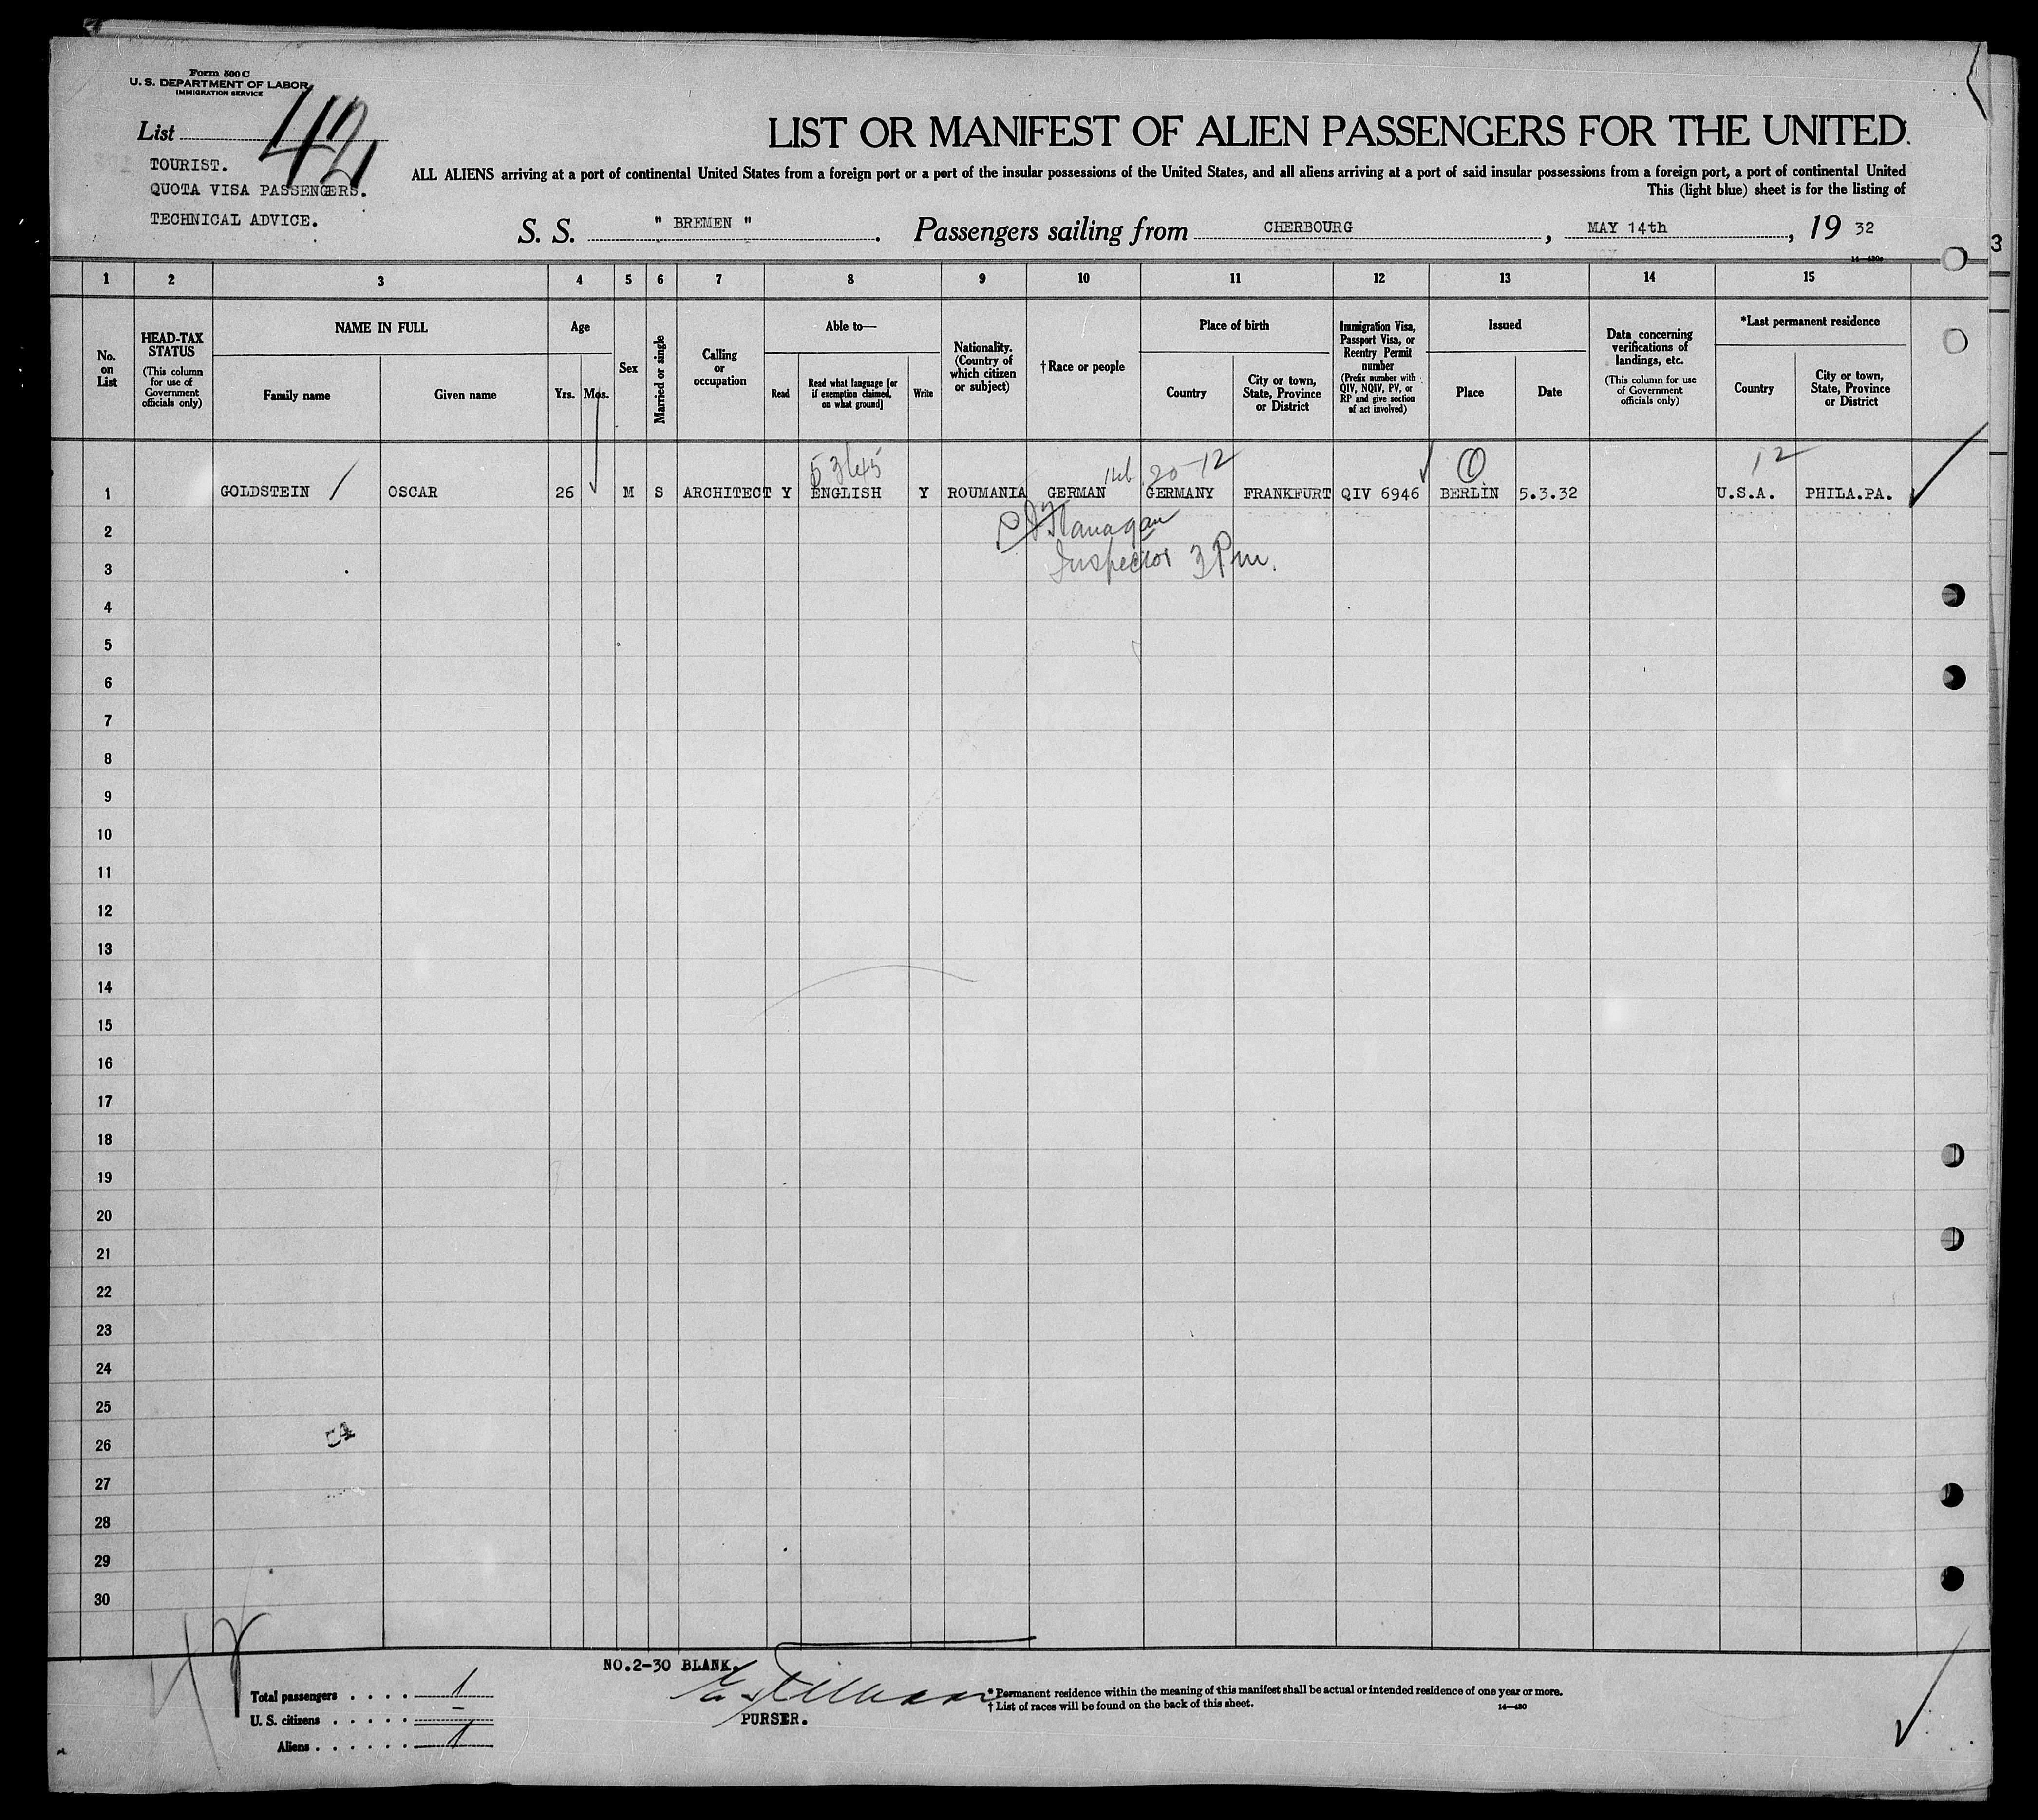 Form 500 C
U. S. DEPARTMENT OF LABOR
IMMIGRATION SERVICE
List 42
TOURIST.
QUOTA VISA PASSENGERS.
TECHNICAL ADVICE.
LIST OR MANIFEST OF ALIEN PASSENGERS FOR THE UNITED
ALL ALIENS arriving at a port of continental United States from a foreign port or a port of the insular possessions of the United States, and all aliens arriving at a port of said insular possessions from a foreign port, a port of continental United
This (light blue) sheet is for the listing of
S. S. " BREMEN " . Passengers sailing from CHERBOURG , MAY 14th , 19 32
3
1 2 3 4 5 6 7 8 9 10 11 12 13 14 15
No. on List
HEAD-TAX STATUS (This column for use of Government officials only)
NAME IN FULL
Family name
Given name
Age
Yrs.
Mos.
Sex
Married or single
Calling or occupation
Able to—
Read
Read what language [or if exemption claimed, on what ground]
Write
Nationality. (Country of which citizen or subject)
†Race or people
Place of birth
Country
City or town, State, Province or District
Immigration Visa, Passport Visa, or Reentry Permit number (Prefix number with QIV, NQIV, PV, or RP and give section of act involved)
Issued
Place
Date
Data concerning verifications of landings, etc. (This column for use of Government officials only)
*Last permanent residence
Country
City or town, State, Province or District
20-12 12
1 GOLDSTEIN OSCAR 26 M S ARCHITECT Y ENGLISH Y ROUMANIA GERMAN GERMANY FRANKFURT QIV 6946 BERLIN 5.3.32 U.S.A. PHILA.PA.
2 Flanagan
3 Inspector 3 Pm.
4
5
6
7
8
9
10
11
12
13
14
15
16
17
18
19
20
21
22
23
24
25
26
27
28
29
30
NO.2-30 BLANK.
Total passengers . . . . 1
U. S. citizens . . . . . –
Aliens . . . . . . 1
PURSER.
* Permanent residence within the meaning of this manifest shall be actual or intended residence of one year or more.
† List of races will be found on the back of this sheet.
14—430